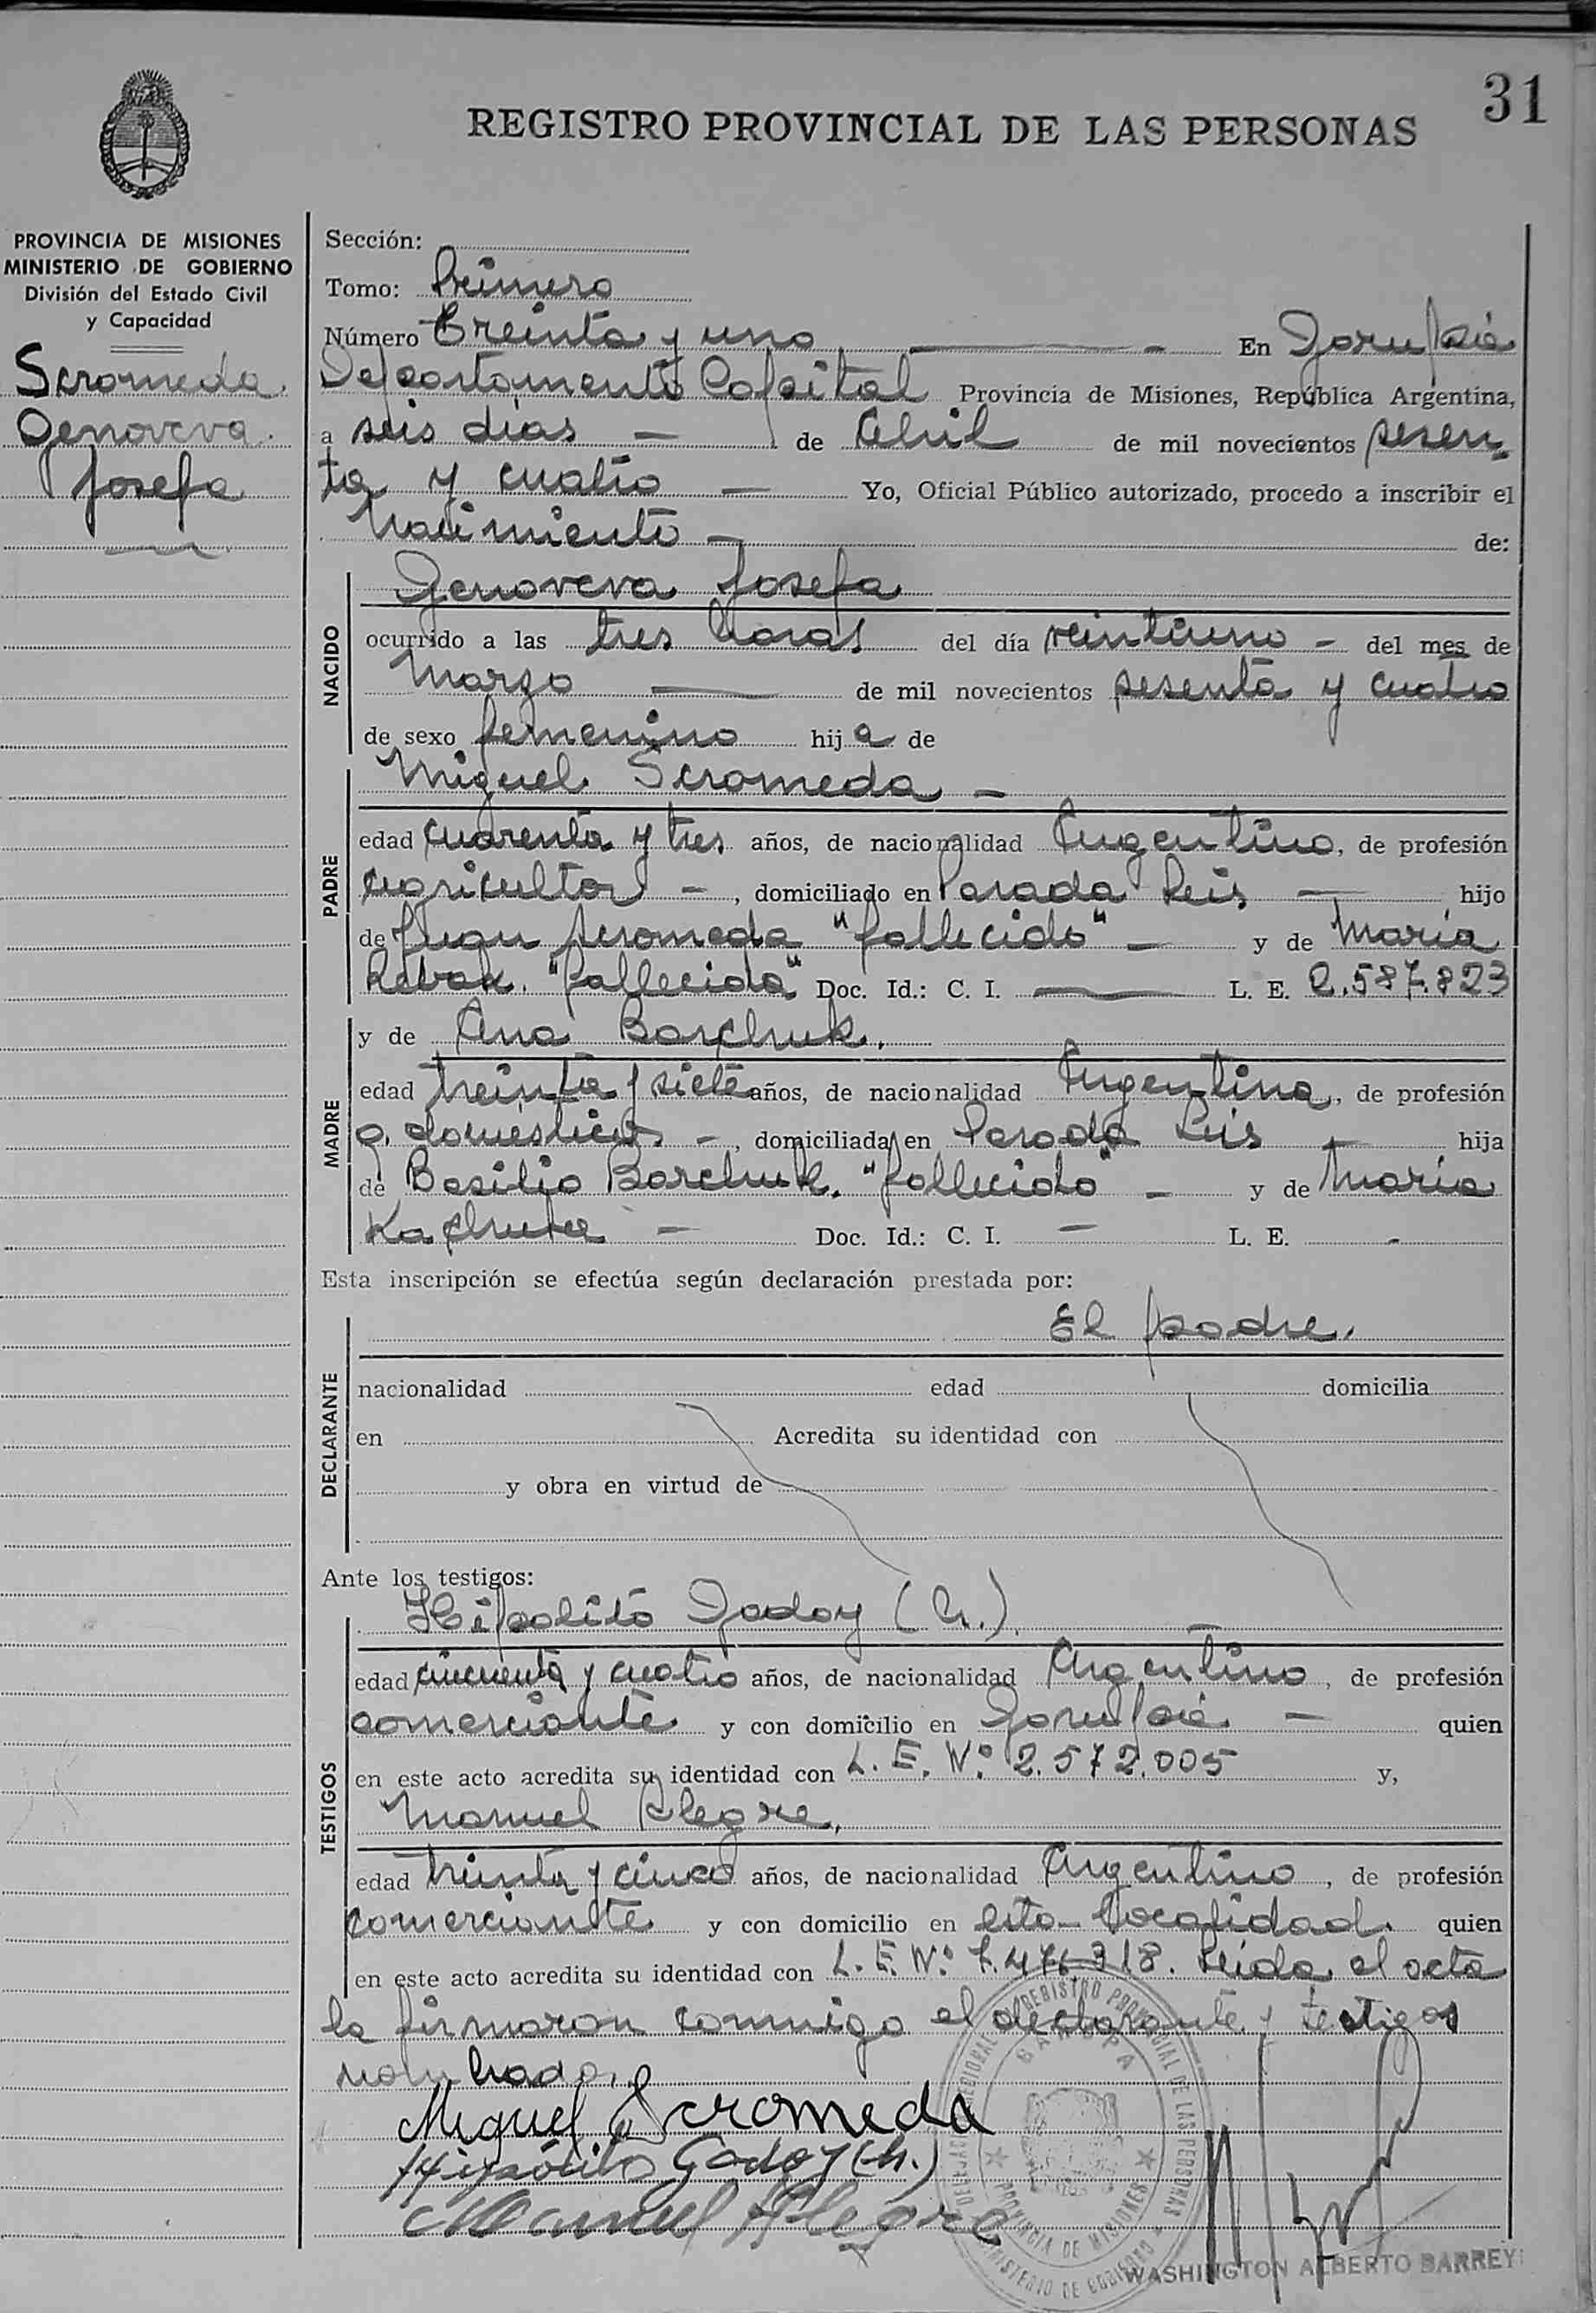 31
REGISTRO PROVINCIAL DE LAS PERSONAS
PROVINCIA DE MISIONES
MINISTERIO DE GOBIERNO
División del Estado Civil
y Capacidad
Scromeda
Genoveva
Josefa
Sección:
Tomo: Primero
Número Treinta y uno — En Garupá
Departamento Capital Provincia de Misiones, República Argentina,
a seis días — de Abril de mil novecientos sesen-
ta y cuatro — Yo, Oficial Público autorizado, procedo a inscribir el
Nacimiento — de:
NACIDO
Genoveva Josefa
ocurrido a las tres horas del día veintiuno - del mes de
Marzo — de mil novecientos sesenta y cuatro
de sexo femenino hij a de
PADRE
Miguel Scromeda —
edad cuarenta y tres años, de nacionalidad Argentino, de profesión
agricultor —, domiciliado en Parada Leis — hijo
de Juan Scromeda "fallecido" — y de María
"fallecida" Doc. Id.: C. I. — L. E. 2.587.823
MADRE
y de Ana Barchuk.
edad treinta y siete años, de nacionalidad Argentina, de profesión
q. domésticos —, domiciliada en Parada Leis — hija
de Basilio Barchuk. "fallecido" — y de María
— Doc. Id.: C. I. — L. E. -
Esta inscripción se efectúa según declaración prestada por:
DECLARANTE
El padre.
nacionalidad edad domicilia
en Acredita su identidad con
y obra en virtud de
Ante los testigos:
TESTIGOS
Hipolito Godoy (h.). —
edad cincuenta y cuatro años, de nacionalidad Argentino, de profesión
comerciante y con domicilio en Garupá — quien
en este acto acredita su identidad con L. E. Nº 2.572.005 y,
Manuel Alegre.
edad treinta y cinco años, de nacionalidad Argentino, de profesión
comerciante y con domicilio en esta localidad. quien
en este acto acredita su identidad con L. E. Nº 7.476.318. Leida el acta
la firmaron conmigo el declarante y testigos
nombrados.
Miguel Scromeda
Hipólito Godoy (h.)
Manuel Alegre
REGISTRO PROVINCIAL DE LAS PERSONAS
GARUPA
PROVINCIA DE MISIONES
MINISTERIO DE GOBIERNO
WASHINGTON ALBERTO BARREY